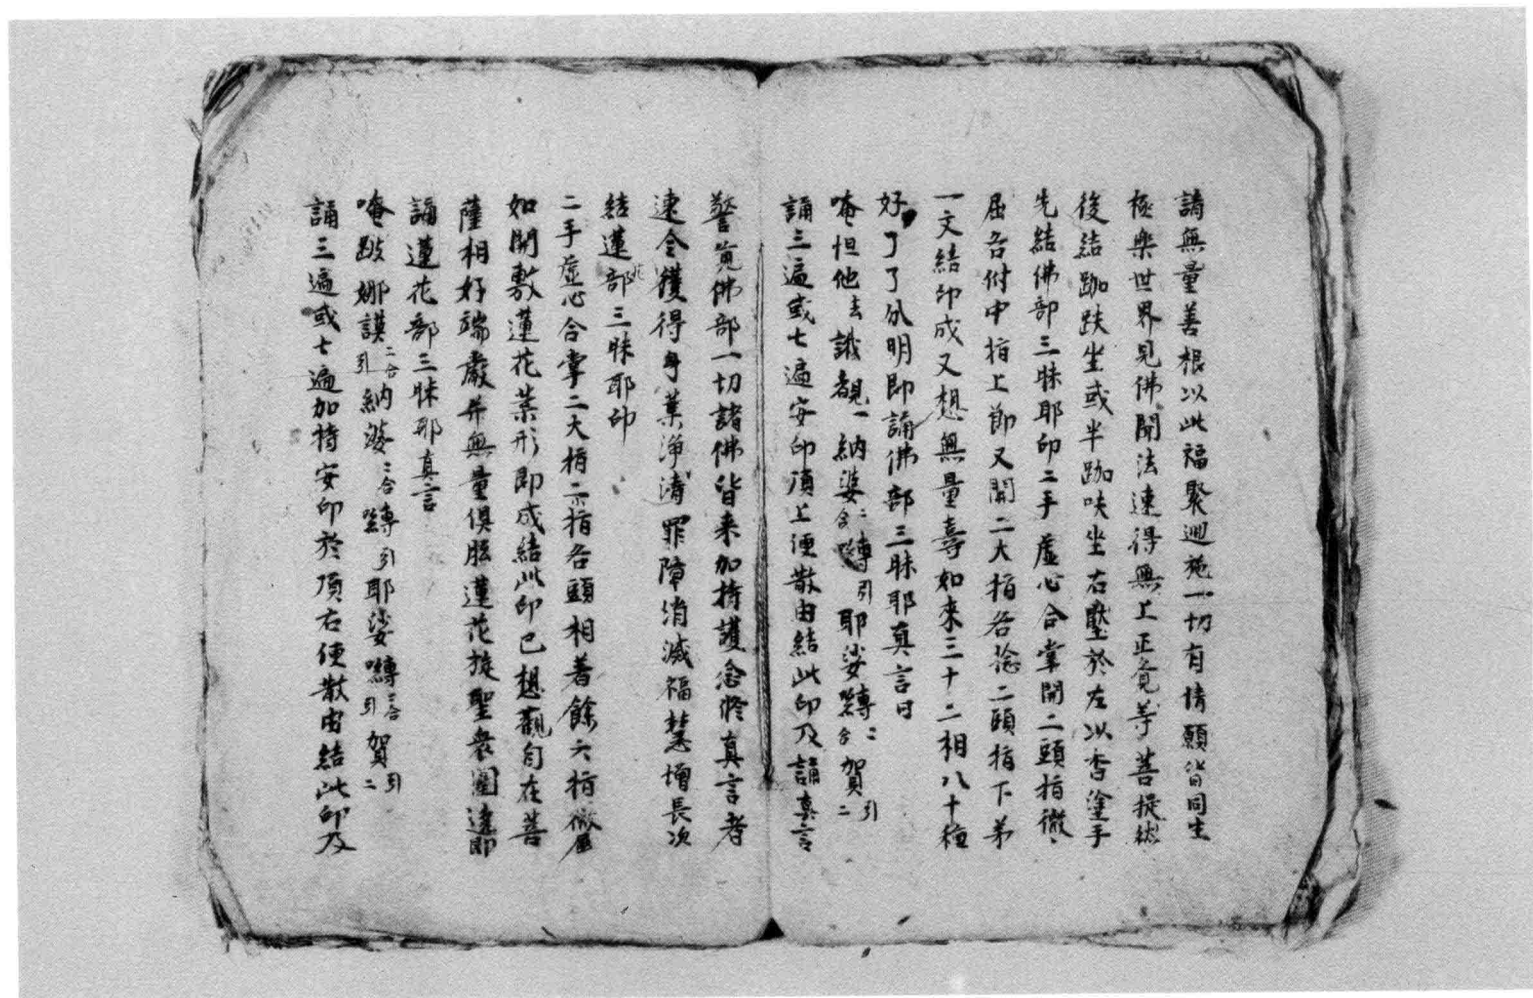 請無量善根以此福聚迴施一切有情願皆同生
極樂世界見佛聞法速得無上正覺等菩提然
後結跏趺坐或半跏趺坐右壓於左以香塗手
先結佛部三昧耶印二手虛心合掌開二頭指微、
屈各付中指上節又開二大指各捻二頭指下弟
一文結印成又想無量壽如來三十二相八十種
好了了分明即誦佛部三昧耶真言曰
唵怛他去誐覩一納婆二合嚩二引耶娑嚩二合賀引二
誦三遍或七遍安印頂上便散由結此印及誦真言
警覺佛部一切諸佛皆来加持護念修真言者
速令獲得身業淨清罪障消滅福慧增長次
結蓮花部三昧耶印
二手虛心合掌二大指二小指各頭相著餘六指微屈
如開敷蓮花葉形即成結此印已想觀自在菩
薩相好端嚴并無量俱胝蓮花族聖衆圍遶即
誦蓮花部三昧耶真言
唵跛娜謨二合引納婆二合嚩引耶娑嚩二合引賀引二
誦三遍或七遍加持安印於頂右便散由結此印及